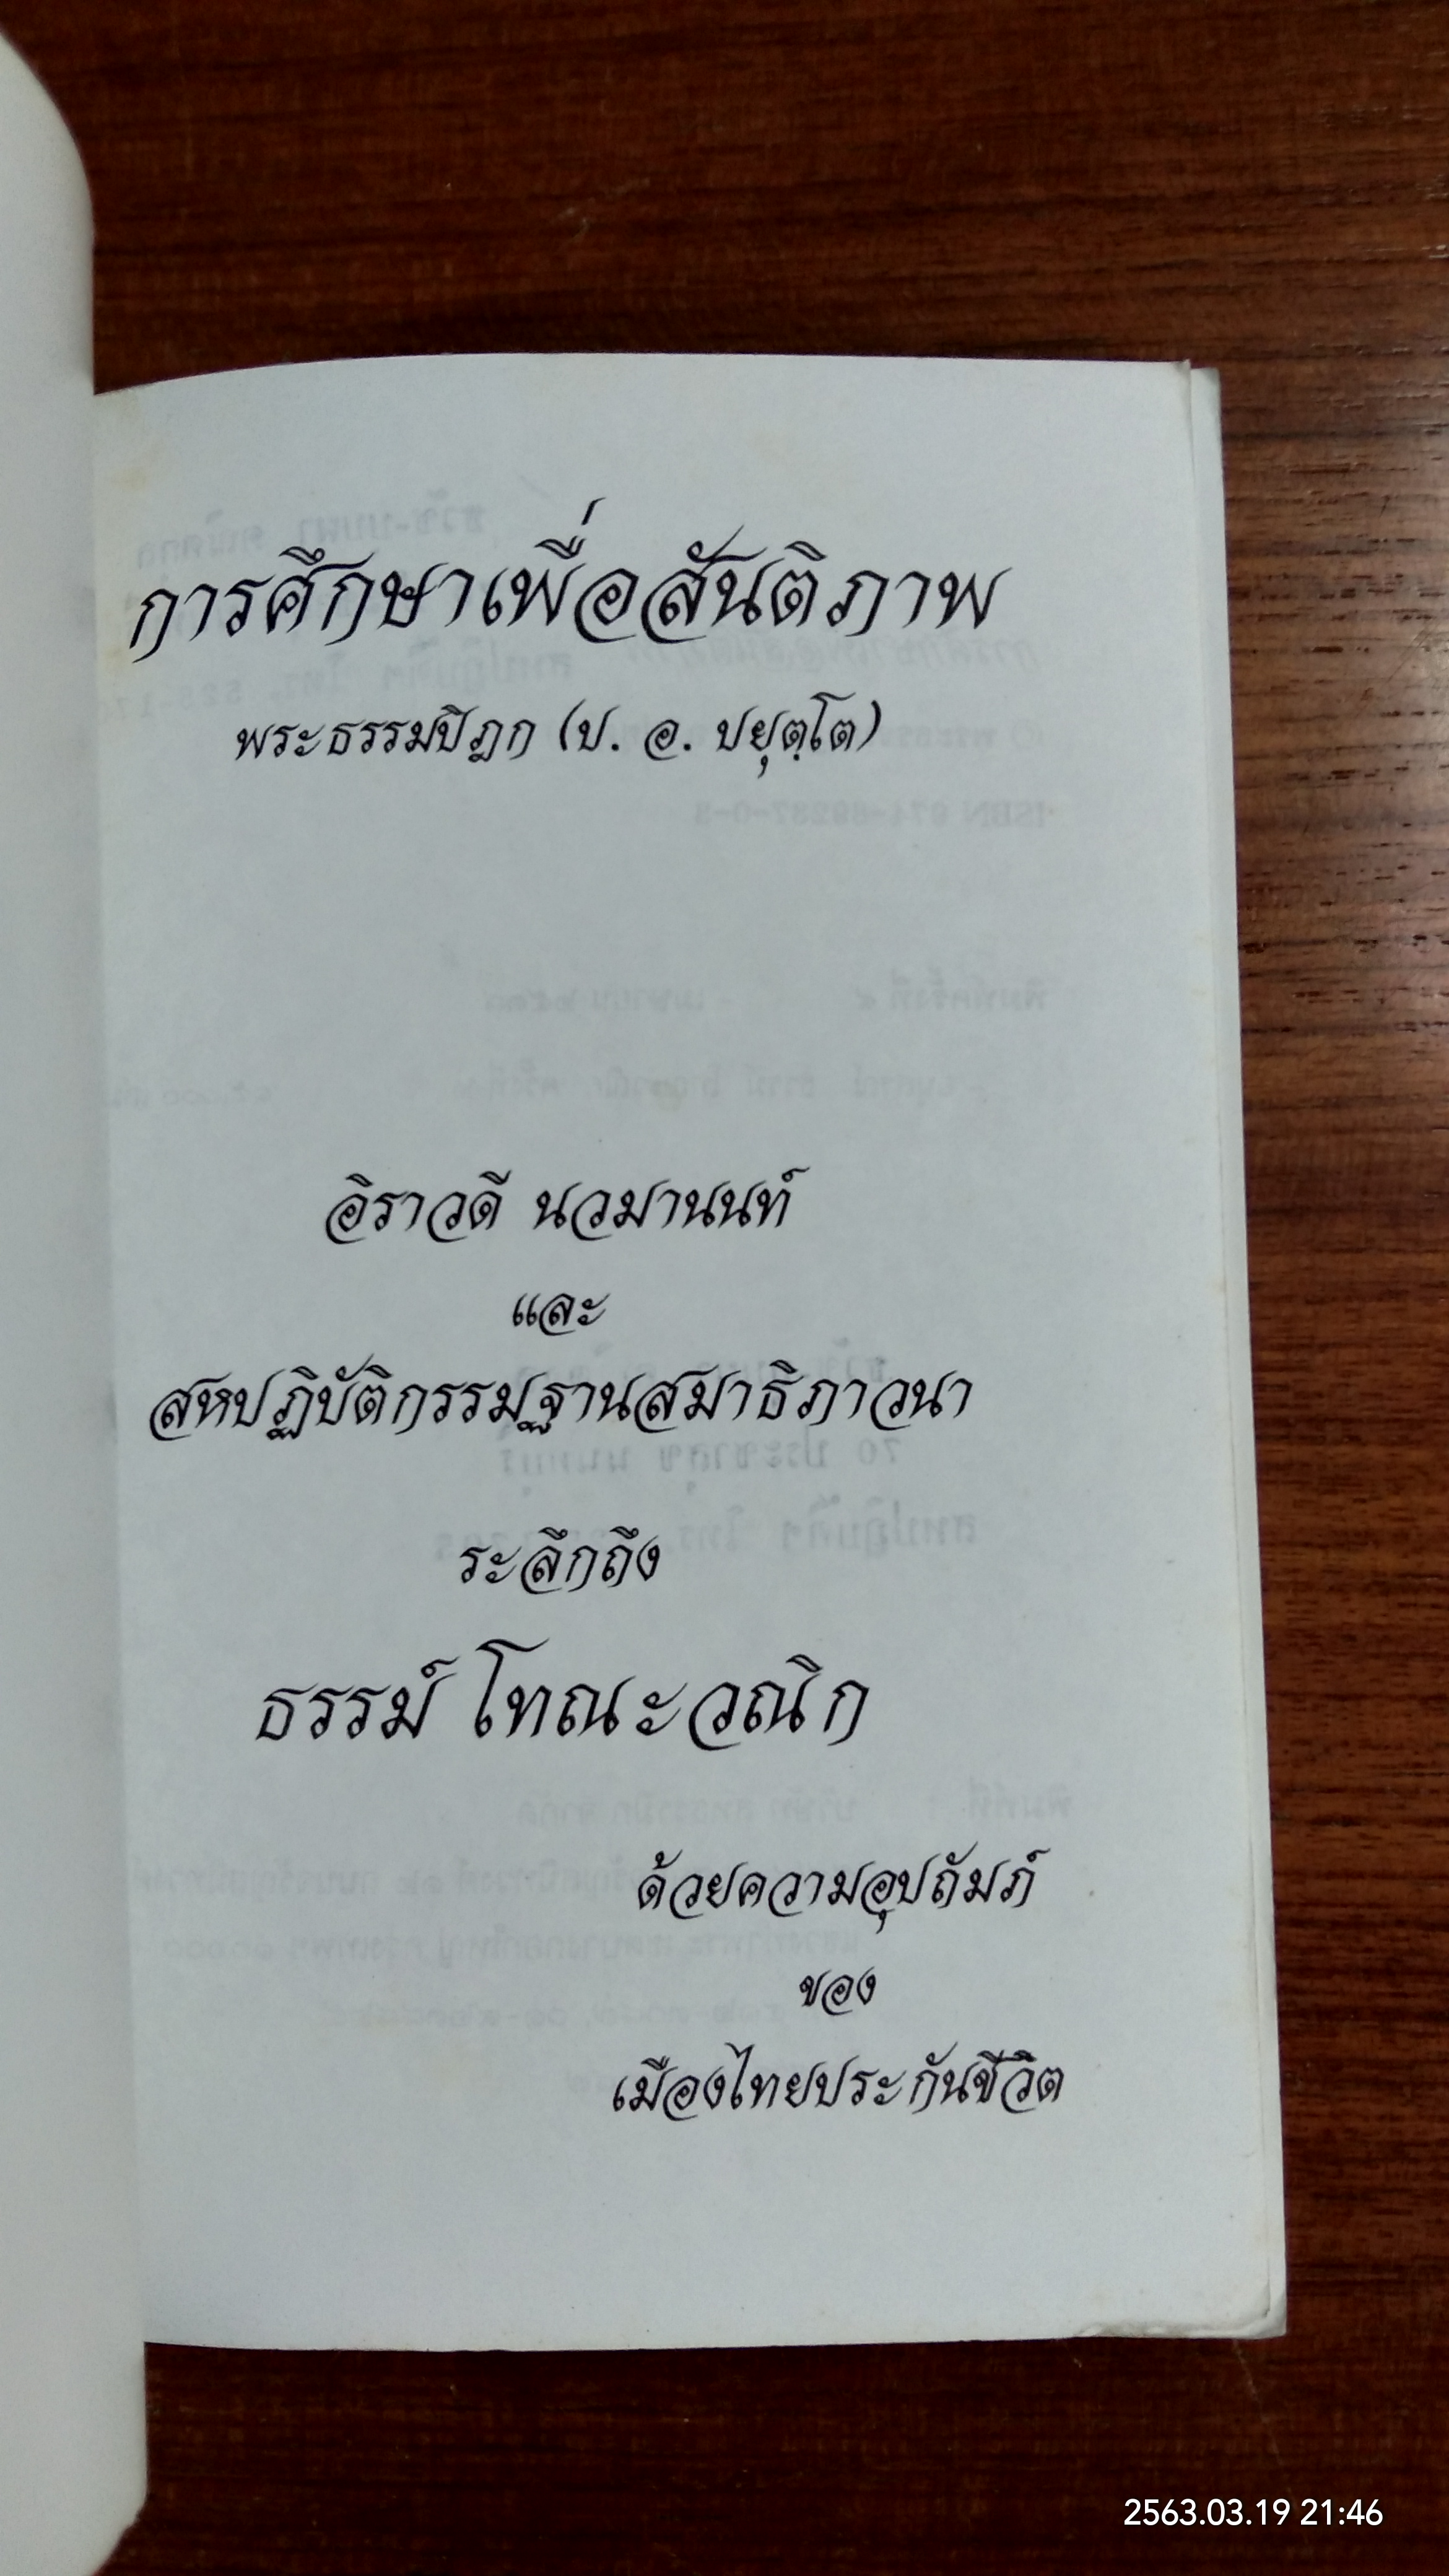 การศึกษาเพื่อสันติภาพ
พระธรรมปิฎก (ป. อ. ปยุตฺโต)
อิราวดี นวมานนท์
และ
สหปฏิบัติกรรมฐานสมาธิภาวนา
ระลึกถึง
ธรรม์ โทณะวณิก
ด้วยความอุปถัมภ์
ของ
เมืองไทยประกันชีวิต
2563.03.19 21:46